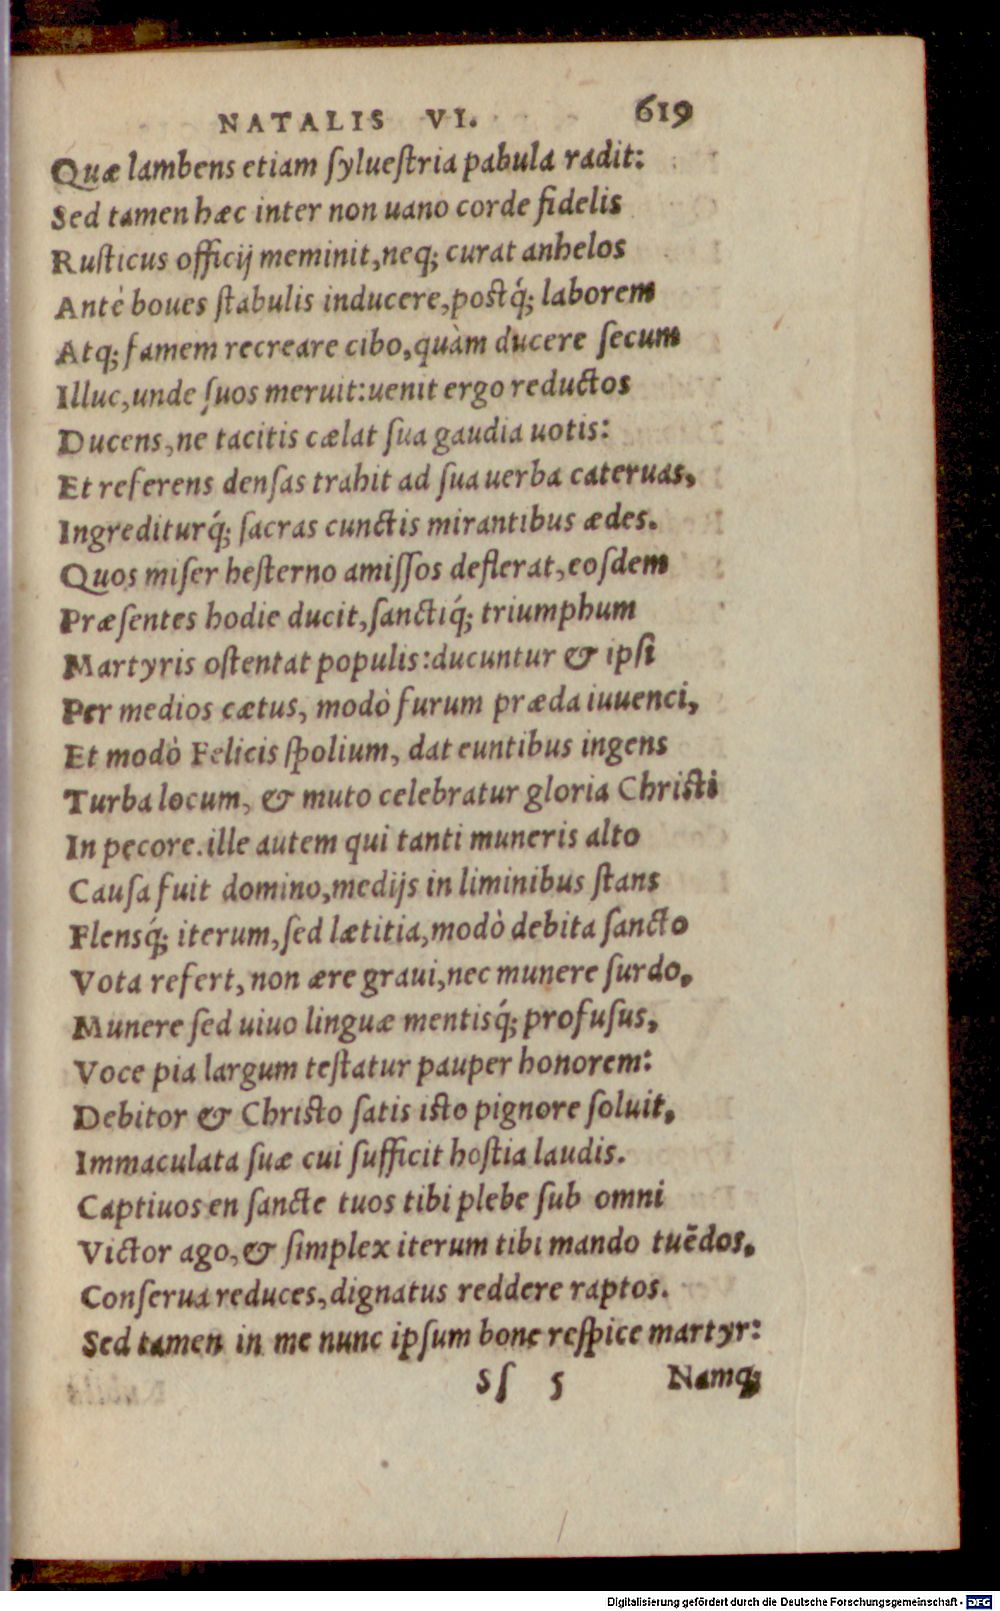 NATALIS VI. 619
Quæ lambens etiam ſylueſtria pabula radit:
Sed tamen hæc inter non uano corde fidelis
Ruſticus officij meminit, neq; curat anhelos
Antè boues ſtabulis inducere, poſtq́; laborem
Atq; famem recreare cibo, quàm ducere ſecum
Illuc, unde ſuos meruit: uenit ergo reductos
Ducens, ne tacitis cælat ſua gaudia uotis:
Et referens denſas trahit ad ſua uerba cateruas,
Ingrediturq́; ſacras cunctis mirantibus ædes.
Quos miſer heſterno amiſſos deflerat, eoſdem
Præſentes hodie ducit, ſanctiq́; triumphum
Martyris oſtentat populis: ducuntur & ipſi
Per medios cætus, modò furum præda iuuenci,
Et modò Felicis ſpolium, dat euntibus ingens
Turba locum, & muto celebratur gloria Chriſti
In pecore. ille autem qui tanti muneris alto
Cauſa fuit domino, medijs in liminibus ſtans
Flensq́; iterum, ſed lætitia, modò debita ſancto
Vota refert, non ære graui, nec munere ſurdo,
Munere ſed uiuo linguæ mentisq́; profuſus,
Voce pia largum teſtatur pauper honorem:
Debitor & Chriſto ſatis iſto pignore ſoluit,
Immaculata ſuæ cui ſufficit hoſtia laudis.
Captiuos en ſancte tuos tibi plebe ſub omni
Victor ago, & ſimplex iterum tibi mando tuẽdos,
Conſerua reduces, dignatus reddere raptos.
Sed tamen in me nunc ipſum bone reſpice martyr:
Sſ 5 Namq;
Digitalisierung gefördert durch die Deutsche Forschungsgemeinschaft - DFG